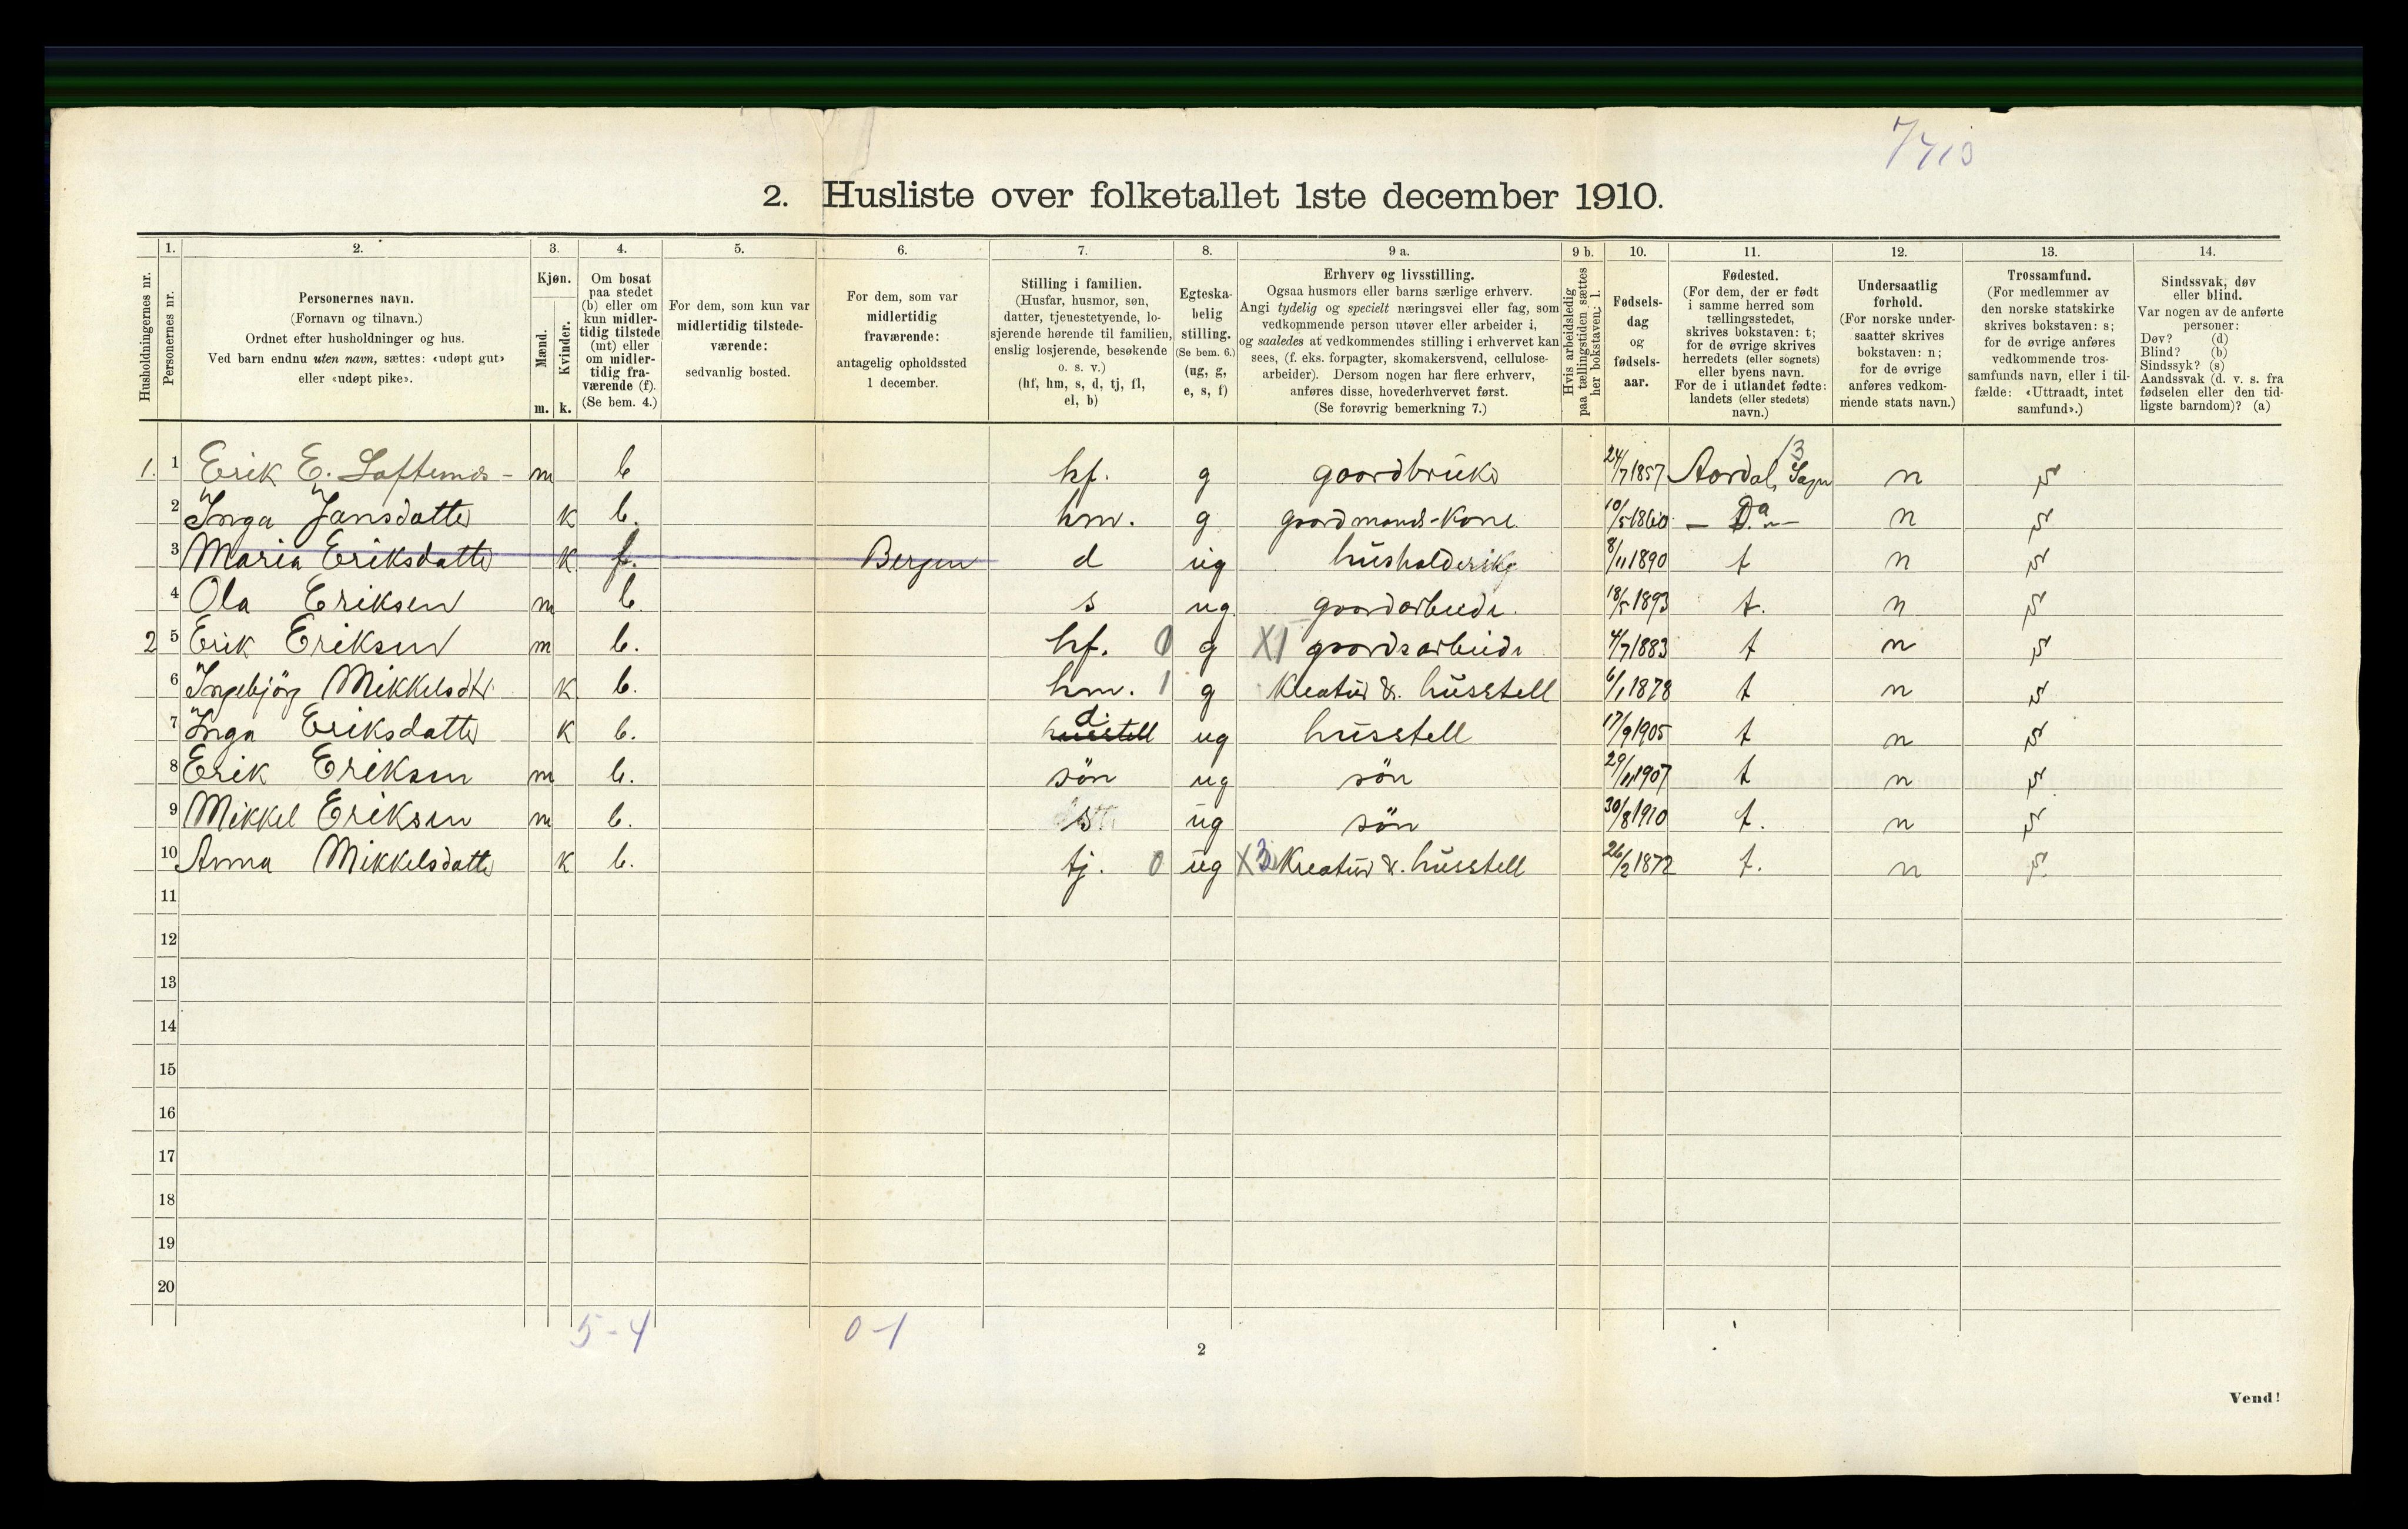 7410
2. Husliste over folketallet 1ste december 1910.
Husholdningernes nr.
1. Personernes nr.
2. Personernes navn.
(Fornavn og tilnavn.)
Ordnet efter husholdninger og hus.
Ved barn endnu uten navn, sættes: «udøpt gut»
eller «udøpt pike».
3. Kjøn.
Mænd. Kvinder.
m. k.
4. Om bosat
paa stedet
(b) eller om
kun midler-
tidig tilstede
(mt) eller
om midler-
tidig fra-
værende (f).
(Se bem. 4.)
5. For dem, som kun var
midlertidig tilstede-
værende:
sedvanlig bosted.
6. For dem, som var
midlertidig
fraværende:
antagelig opholdssted
1 december.
7. Stilling i familien.
(Husfar, husmor, søn,
datter, tjenestetyende, lo-
sjerende hørende til familien,
enslig losjerende, besøkende
o. s. v.)
(hf, hm, s, d, tj, fl,
el, b)
8. Egteska-
belig
stilling.
(Se bem. 6.)
(ug, g,
e, s, f)
9 a. Erhverv og livsstilling.
Ogsaa husmors eller barns særlige erhverv.
Angi tydelig og specielt næringsvei eller fag, som
vedkommende person utøver eller arbeider i,
og saaledes at vedkommendes stilling i erhvervet kan
sees, (f. eks. forpagter, skomakersvend, cellulose-
arbeider). Dersom nogen har flere erhverv,
anføres disse, hovederhvervet først.
(Se forøvrig bemerkning 7.)
9 b. Hvis arbeidsledig
paa tællingstiden sættes
her bokstaven: l.
10. Fødsels-
dag
og
fødsels-
aar.
11. Fødested.
(For dem, der er født
i samme herred som
tællingsstedet,
skrives bokstaven: t;
for de øvrige skrives
herredets (eller sognets)
eller byens navn.
For de i utlandet fødte:
landets (eller stedets)
navn.)
12. Undersaatlig
forhold.
(For norske under-
saatter skrives
bokstaven: n;
for de øvrige
anføres vedkom-
mende stats navn.)
13. Trossamfund.
(For medlemmer av
den norske statskirke
skrives bokstaven: s;
for de øvrige anføres
vedkommende tros-
samfunds navn, eller i til-
fælde: «Uttraadt, intet
samfund».)
14. Sindssvak, døv
eller blind.
Var nogen av de anførte
personer:
Døv? (d)
Blind? (b)
Sindssyk? (s)
Aandssvak (d. v. s. fra
fødselen eller den tid-
ligste barndom)? (a)
1. 1 Erik E. m b hf. g 24/7 1857 Aardal, Sogn 13 n s
2 Inga Jansdatter k b. hm. g gaardmands-kone 10/5 1860 — Do — n s
3 Maria Eriksdatter k f. Bergen d ug 8/11 1890 t n s
4 Ola Eriksen m b. s ug. gaardarbeide. 18/5 1893 t. n s
2 5 Erik Eriksen m b. hf. 0 g X1 gaardsarbeide 4/7 1883 t n s
6 Ingebjörg Mikkelsdtr. k b. hm. 1 g Kreatur & husstell 6/1 1878 t n s
7 Inga Eriksdatter k b. husstell d. ug husstell 17/9 1905 t n s
8 Erik Eriksen m b. sön ug sön 29/11 1907 t n s
9 Mikkel Eriksen m b. s. ug sön 30/8 1910 t. n s
10 Anna Mikkelsdatter k b. tj. 0 ug X3 Kreatur & husstell 26/2 1872 t. n s.
11
12
13
14
15
16
17
18
19
20
5-4 0-1
2
Vend!